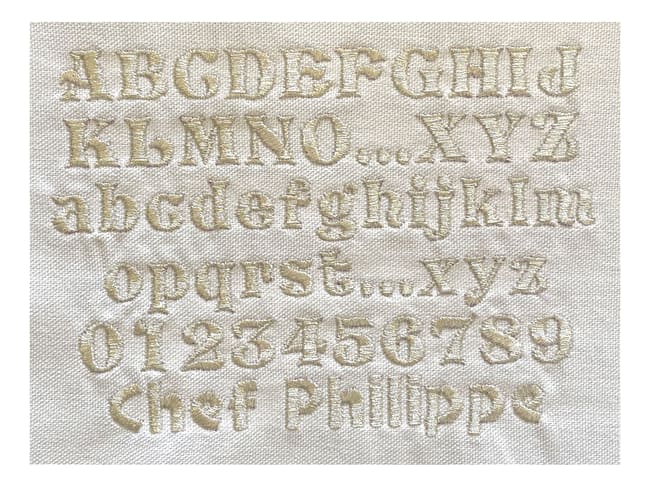 ABCDEFGHIJ
KLMNO...XYZ
abcdefghijklm
opqrst...xyz
0123456789
Chef Philippe